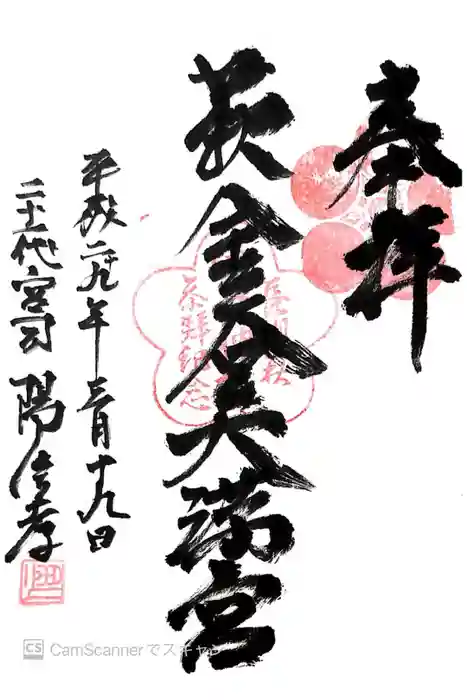 奉拝
萩金谷天満宮
平成二十九年三月十九日
二十一代宮司 陽信孝
参拝記念
CS CamScannerでスキャン